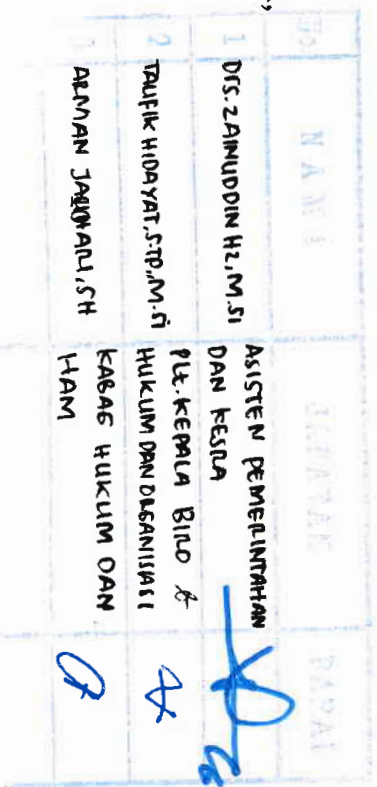 NO NAMA JABATAN PARAF
1 Drs. ZAINUDDIN HZ, M.Si ASISTEN PEMERINTAHAN
DAN KESRA
2 TAUFIK HIDAYAT, S.TP., M.Si PLt. KEPALA BIRO
HUKUM DAN ORGANISASI
3 ARMAN JAUHARI, SH KABAG HUKUM DAN
HAM